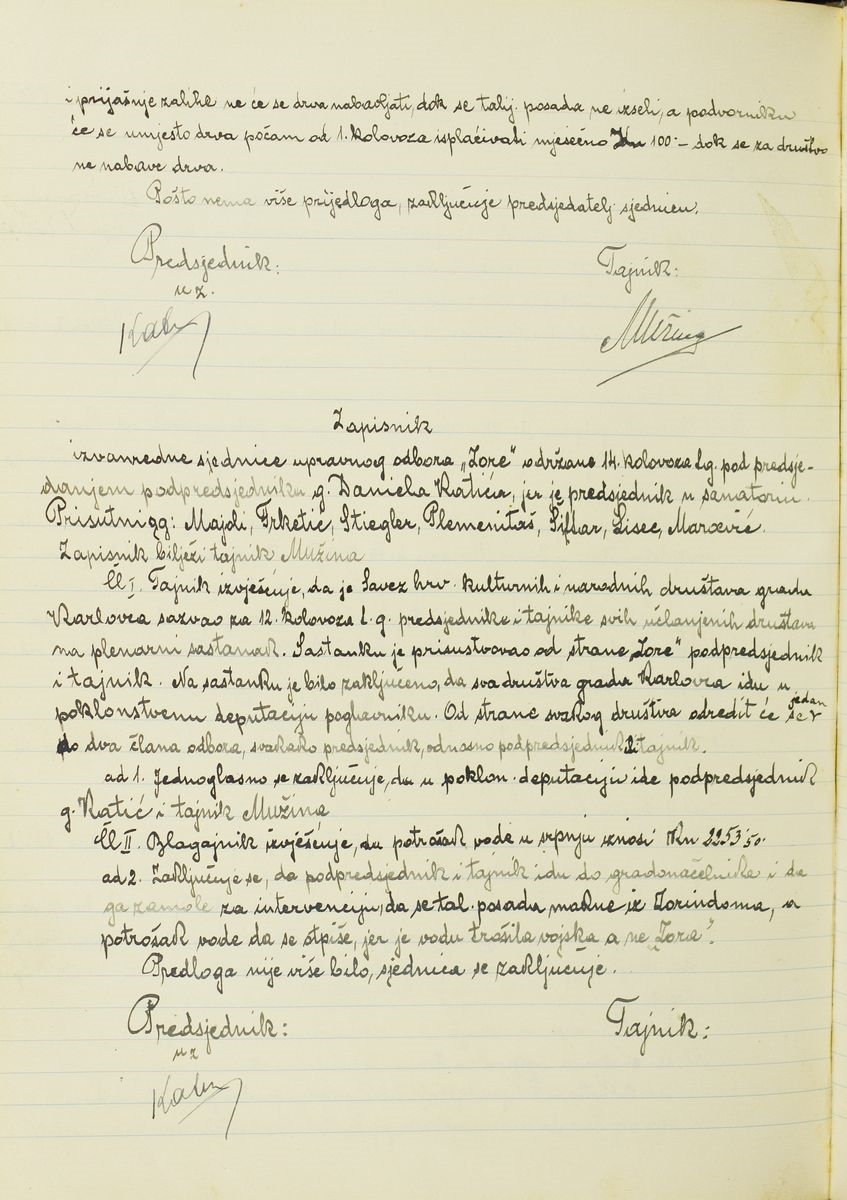 i prijašnje zalihe ne će se drva nabavljati, dok se talij. posada ne izseli, a podvorniku
će se umjesto drva počam od 1. kolovoza isplaćivati mjesečno Kn 100·– dok se za društvo
ne nabave drva.
Pošto nema više prijedloga, zaključuje predsjedatelj sjednicu.
Predsjednik: Tajnik:
u z.
Mužina
Zapisnik
izvanredne sjednice upravnog odbora „Zore“ održane 14. kolovoza t.g. pod predsje-
danjem podpredsjednika g. Daniela Katića, jer je predsjednik u sanatoriu.
Prisutni gg: Majoli, Trketić, Stiegler, Plemenitaš, Šifhar, Lisec, Marović.
Zapisnik bilježi tajnik Mužina
Čl I. Tajnik izvješćuje, da je Savez hrv. kulturnih i narodnih društava grada
Karlovca sazvao za 12. kolovoza t. g. predsjednike i tajnike svih učlanjenih društava
na plenarni sastanak. Sastanku je prisustvovao od strane „Zore“ podpredsjednik
i tajnik. Na sastanku je bilo zaključeno, da sva društva grada Karlovca idu u
poklonstvenu deputaciju poglavniku. Od strane svakog društva odredit će se jedan
do dva člana odbora, svakako predsjednik, odnosno podpredsjednik i tajnik.
ad 1. Jednoglasno se zaključuje, da u poklon. deputaciju ide podpredsjednik
g. Katić i tajnik Mužina
Čl II. Blagajnik izvješćuje, da potrošak vode u srpnju iznosi Kn 2253·50.
ad 2. Zaključuje se, da podpredsjednik i tajnik idu do gradonačelnika i da
ga zamole za intervenciju, da se tal. posada makne iz Zorindoma, a
potrošak vode da se otpiše, jer je vodu trošila vojska a ne „Zora“.
Predloga nije više bilo, sjednica se zaključuje.
Predsjednik: Tajnik:
u z